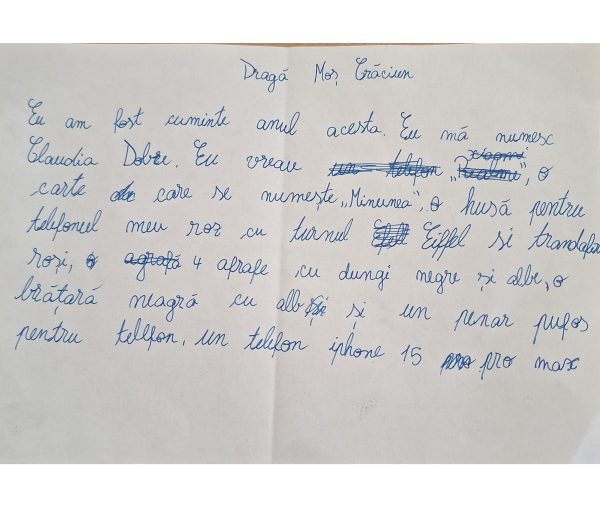 Dragă Moș Crăciun
Eu am fost cuminte anul acesta. Eu mă numesc
Claudia Dobre. Eu vreau un telefon "Realmi Xiaomi", o
carte de care se numește „Minunea", o husă pentru
telefonul meu roz cu turnul Eiffel si trandafiri
roși, o agrafă 4 afrafe cu dungi negre și albe, o
brățară neagră cu alb și un penar pufos
pentru tellfon, un telefon iphone 15 pro pro max